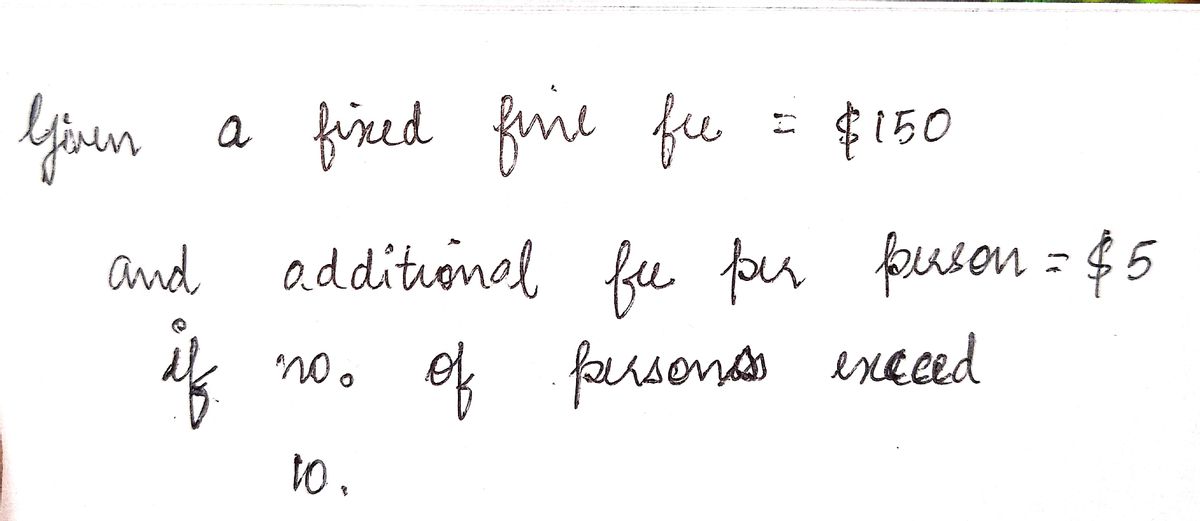 Given a fixed fine fee = $150
and additional fee per person = $5
if no. of persons exceed
10.